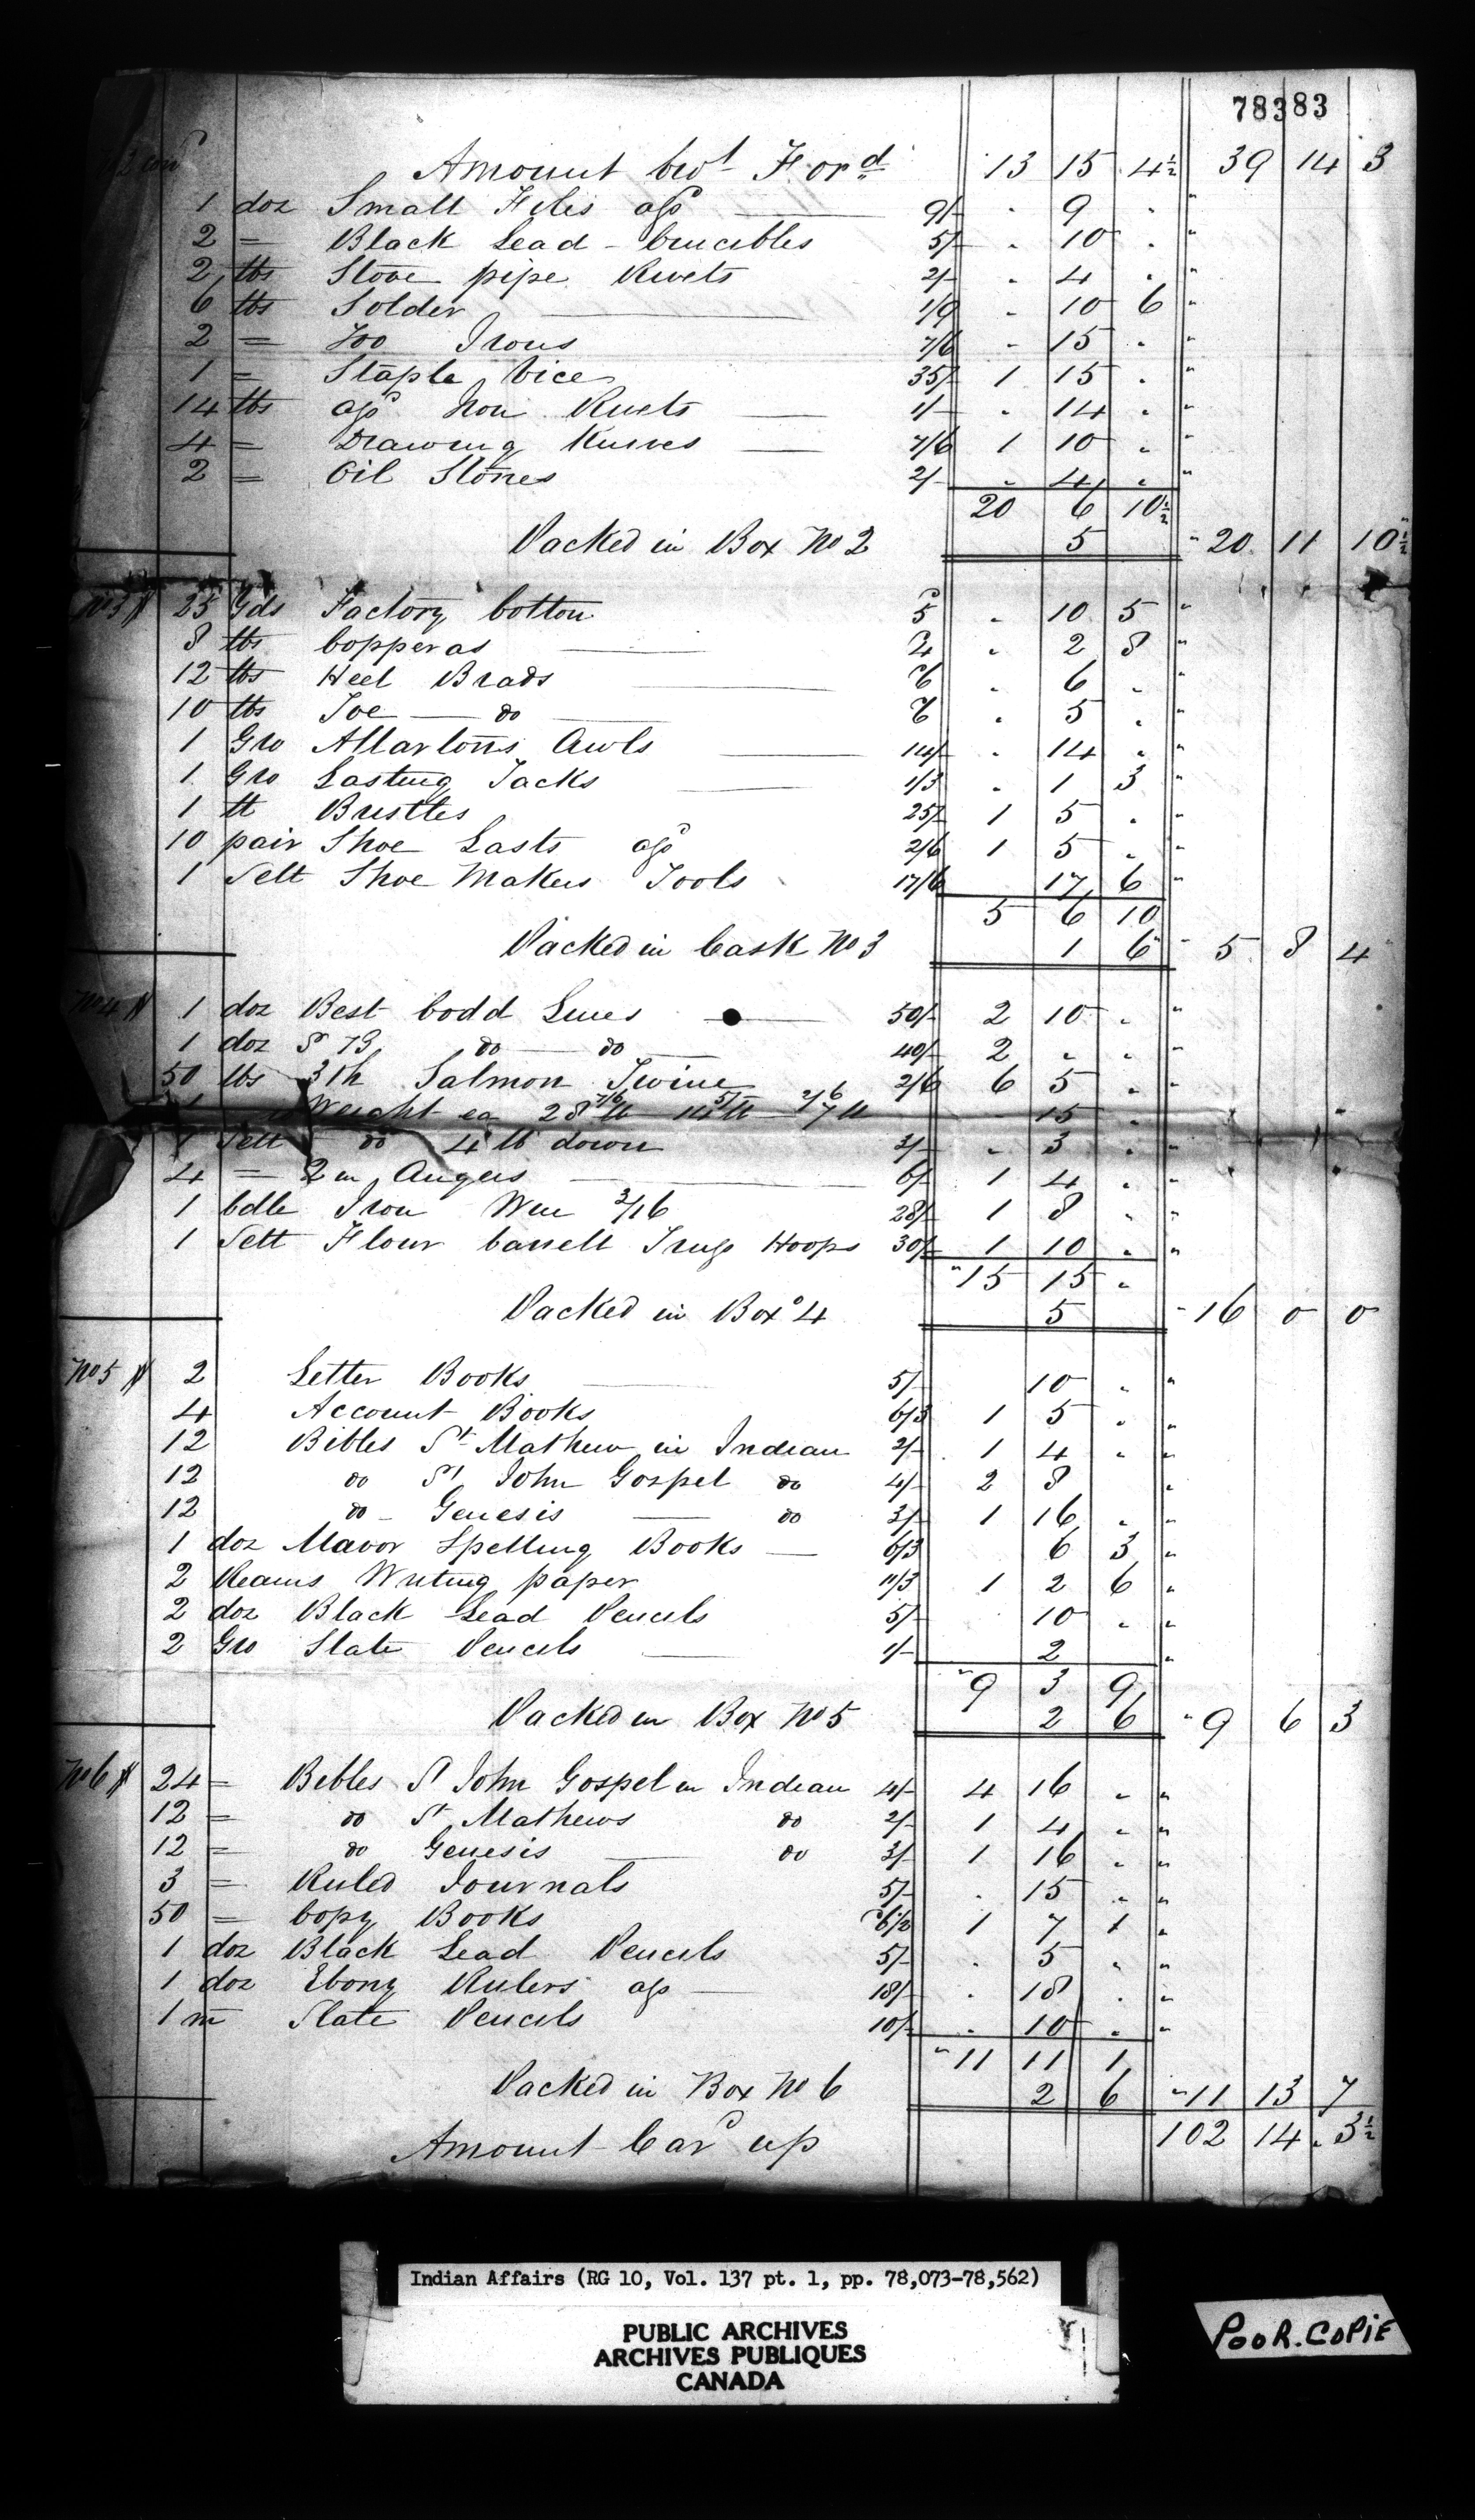 78383
Amount bro^t For^d 13 15 4½ 39 14 3
1 doz Small Files as^d 9/- " 9 "
2 = Black Lead Crucibles 5/- " 10 "
2 lbs Stove pipe Rivets 2/- " 4 "
6 lbs Solder 1/9 " 10 6
2 = Irons 7/6 " 15 "
1 = Staple Vice 35/- 1 15 "
14 lbs as^d Iron Rivets 1/- " 14 "
4 = Drawing Knives 7/6 1 10 "
2 = Oil Stones 2/- " 4 "
20 6 10½
Packed in Box No 2 5 20 11 10½
No 3 25 Yds Factory Cotton 5^d " 10 5
8 lbs Copperas 4^d " 2 8
12 lbs Heel Brads 6^d " 6 "
10 lbs Toe do 6 " 5 "
1 Gro Allartons Awls 14/- " 14 "
1 Gro Lasting Tacks 1/3 " 1 3
1 lb Bristles 25/- 1 5 "
10 pair Shoe Lasts as^d 2/6 1 5 "
1 Sett Shoe Makers Tools 17/6 17 6
5 6 10
Packed in Cask No 3 1 6 5 8 4
No 4 1 doz Best Codd Lines 50/- 2 10 "
1 doz do do 40/- 2 " "
50 lbs 3 th Salmon Twine 2/6 6 5 "
Weight ea 28 lb 7/6 14 lb 5/- 7 lb 2/6 " 15 "
1 Sett do 4 lb down 3/- " 3 "
4 = 2 in Augers 6/- 1 4 "
1 bdle Iron Wire 3/16 28/- 1 8 "
1 Sett Flour barrell Truss Hoops 30/- 1 10 "
15 15 "
Packed in Box ° 4 5 16 0 0
No 5 2 Letter Books 5/- 10 "
4 Account Books 6/3 1 5 "
12 Bibles S^t Mathew in Indian 2/- 1 4 "
12 do S^t John Gospel do 4/- 2 8 "
12 do - Genesis do 3/- 1 16 "
1 doz Mavor Spelling Books 6/3 6 3
2 Reams Writing paper 11/3 1 2 6
2 doz Black Lead Pencils 5/- 10 "
2 Gro Slate Pencils 1/- 2
9 3 9
Packed in Box No 5 2 6 9 6 3
No 6 24 = Bibles S^t John Gospel in Indian 4/- 4 16 "
12 = do S^t Mathews do 2/- 1 4 "
12 = do Genesis do 3/ 1 16 "
3 = Ruled Journals 5/- " 15 "
50 = Copy Books 6½^d 1 7 1
1 doz Black Lead Pencils 5/- " 5 "
1 doz Ebony Rulers as^d 18/- " 18 "
1 m Slate Pencils 10/- " 10 "
11 11 1
Packed in Box No 6 2 6 11 13 7
Amount Car^d up 102 14 3½
Indian Affairs (RG 10, Vol. 137 pt. 1, pp. 78,073-78,562)
PUBLIC ARCHIVES
ARCHIVES PUBLIQUES
CANADA
POOR.COPIE